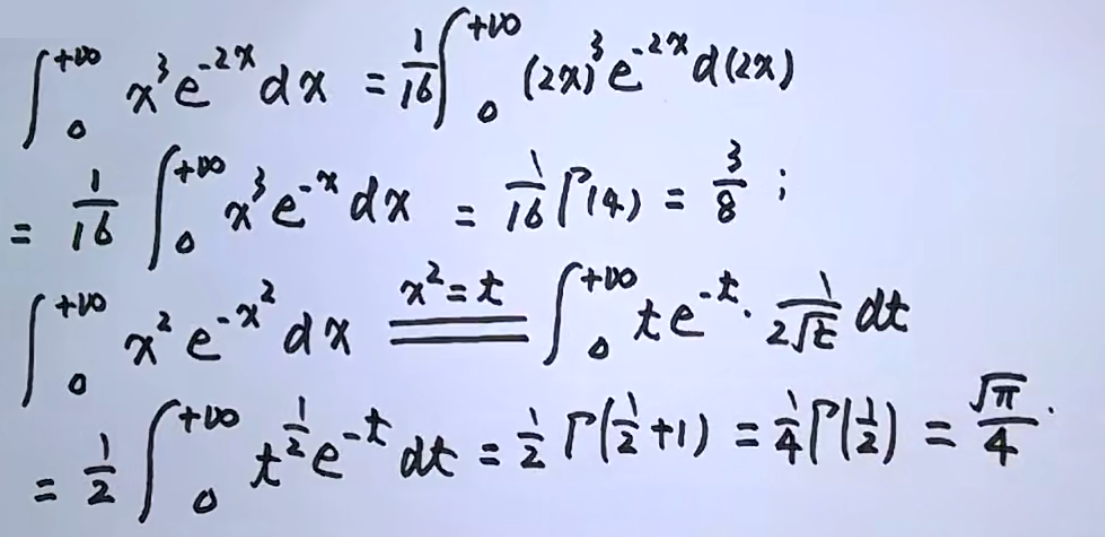 ∫₀^{+∞} x³e^{-2x}dx = 1/16 ∫₀^{+∞} (2x)³e^{-2x}d(2x)
= 1/16 ∫₀^{+∞} x³e^{-x}dx = 1/16 Γ(4) = 3/8 ;
∫₀^{+∞} x²e^{-x²}dx \xlongequal{x²=t} ∫₀^{+∞} te^{-t}· 1/(2√t) dt
= 1/2 ∫₀^{+∞} t^{1/2}e^{-t}dt = 1/2 Γ(1/2+1) = 1/4 Γ(1/2) = √π/4 .